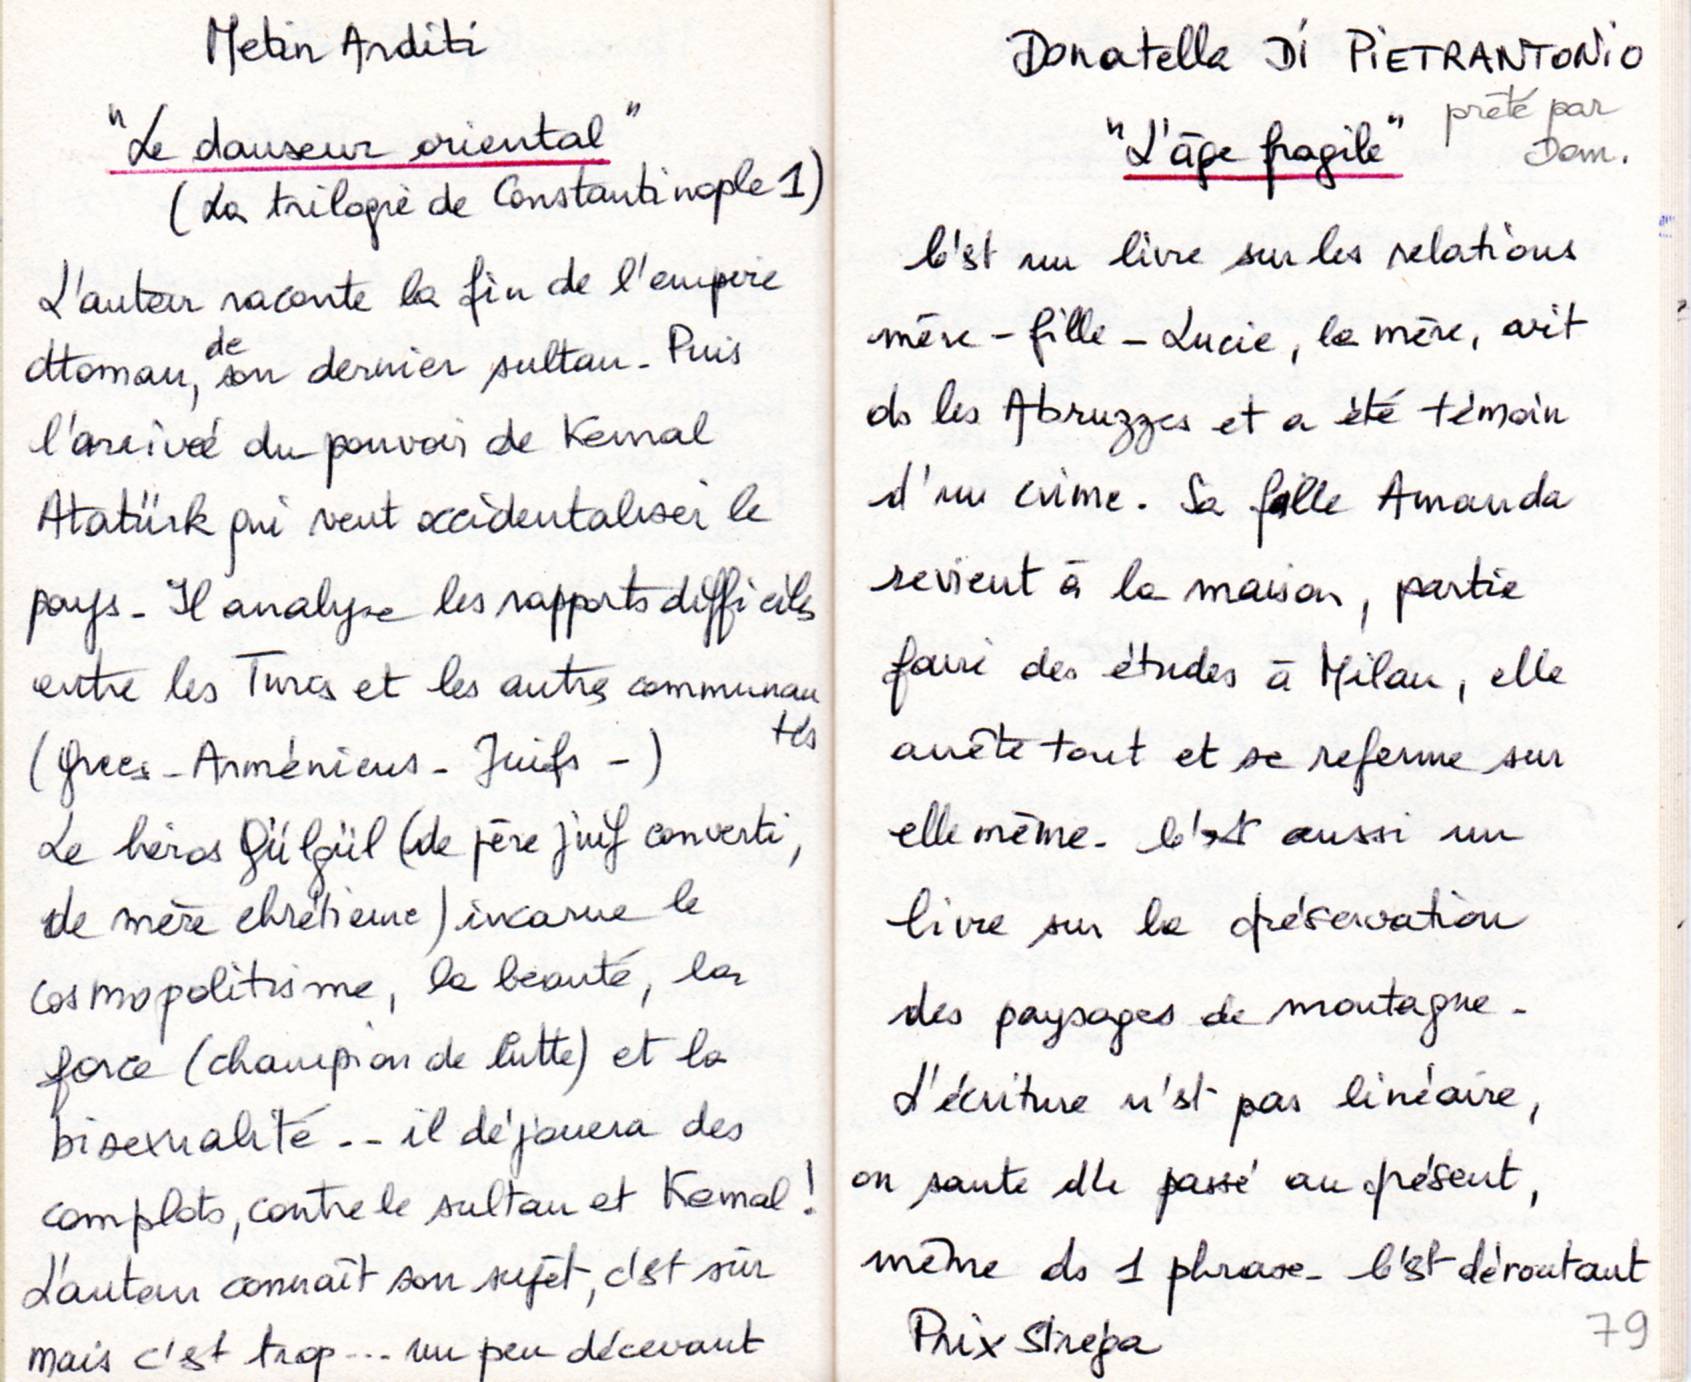 Metin Arditi
"Le danseur oriental"
(La trilogie de Constantinople 1)
L'auteur raconte la fin de l'empire
ottoman, de son dernier sultan - Puis
l'arrivée du pouvoir de Kemal
Atatürk qui veut occidentaliser le
pays - Il analyse les rapports difficiles
entre les Turcs et les autres communau
tés
(Grecs - Arméniens - Juifs -)
Le héros Gülgül (de père juif converti,
de mère chrétienne) incarne le
cosmopolitisme, la beauté, la
force (champion de lutte) et la
bisexualité -- il déjouera des
complots, contre le sultan et Kemal !
L'auteur connaît son sujet, c'est sûr
mais c'est trop --- un peu décevant
Donatella Di PIETRANTONIO
"L'âge fragile" prêté par
Dom.
C'est un livre sur les relations
mère - fille - Lucie, la mère, vit
ds les Abruzzes et a été témoin
d'un crime. Sa fille Amanda
revient à la maison, partie
faire des études à Milan, elle
arrête tout et se referme sur
elle même - C'est aussi un
livre sur la préservation
des paysages de montagne -
L'écriture n'est pas linéaire,
on saute du passé au présent,
même ds 1 phrase - C'est déroutant
Prix Strega
79